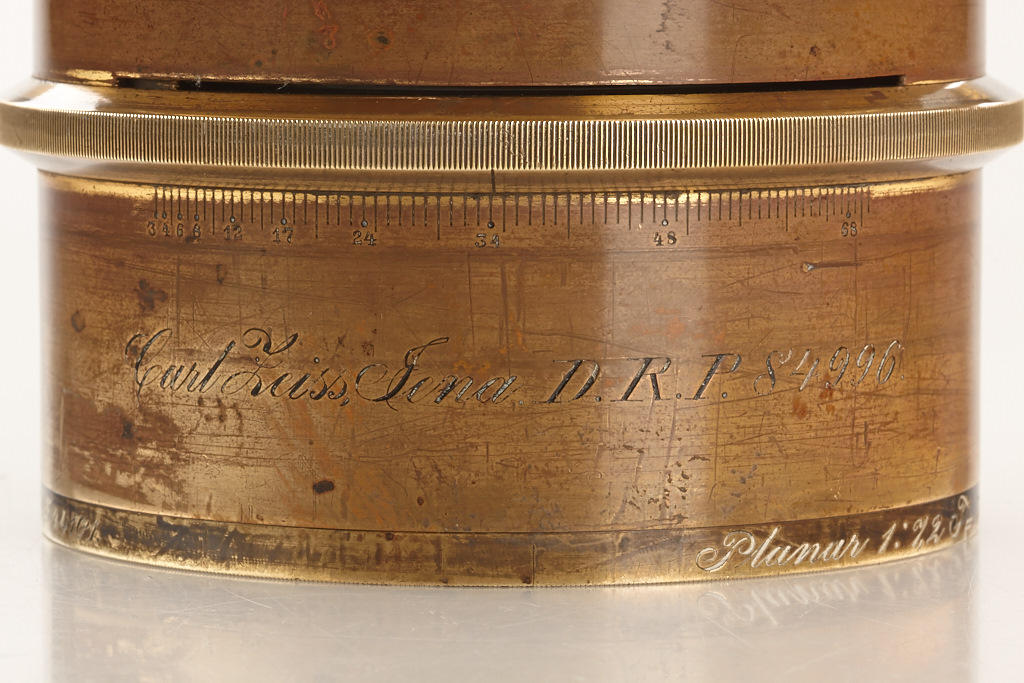 3 4 6 8 12 17 24 34 48 68
Carl Zeiss, Jena. D.R.P. 84996
Planar 1: